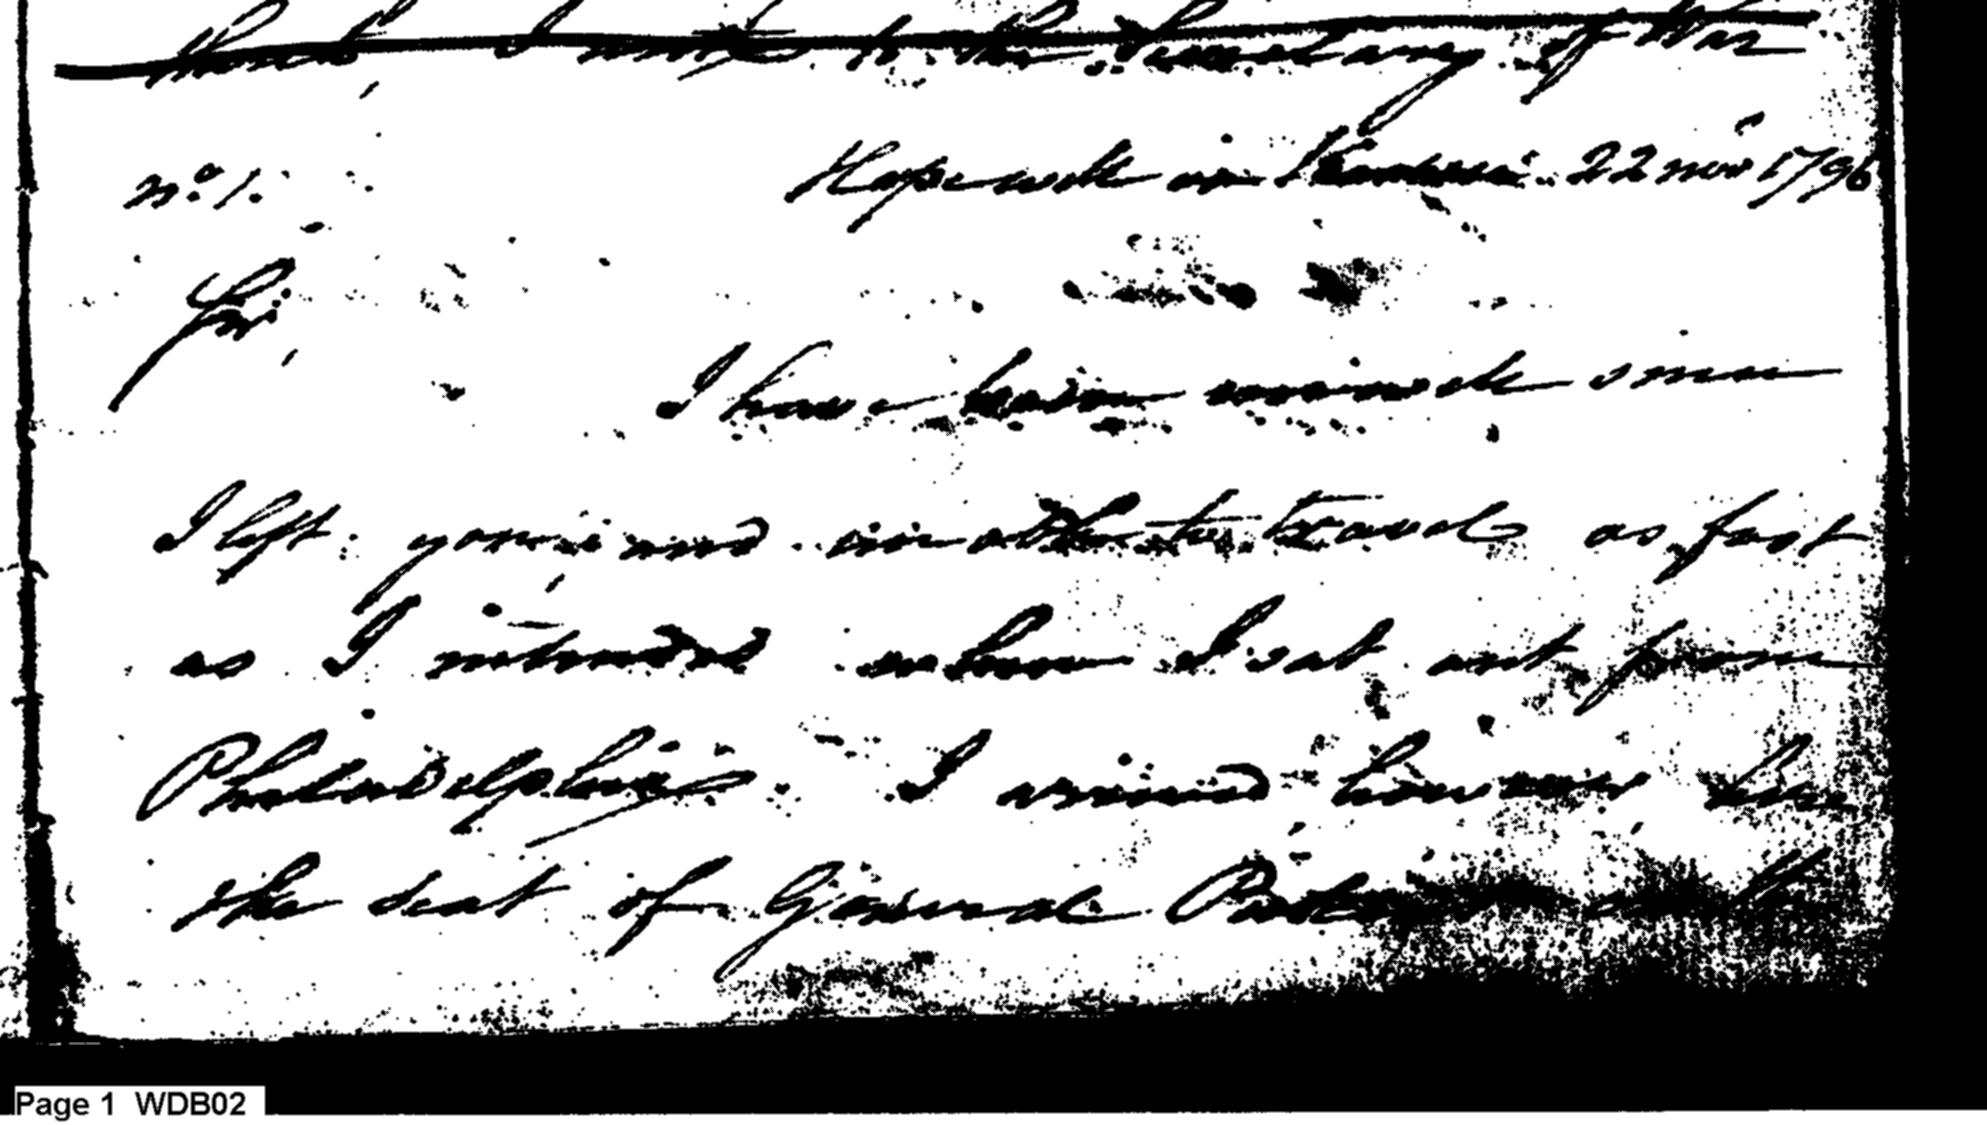 March I wrote to the Secretary of War
No. 1. Hopewell in Pendleton 22 nov 1796
Sir,
I have been unwell since
I left you, and unable to travel as fast
as I intended when I sat out from
Philadelphia. I arrived however here
the seat of General Pickens
Page 1 WDB02